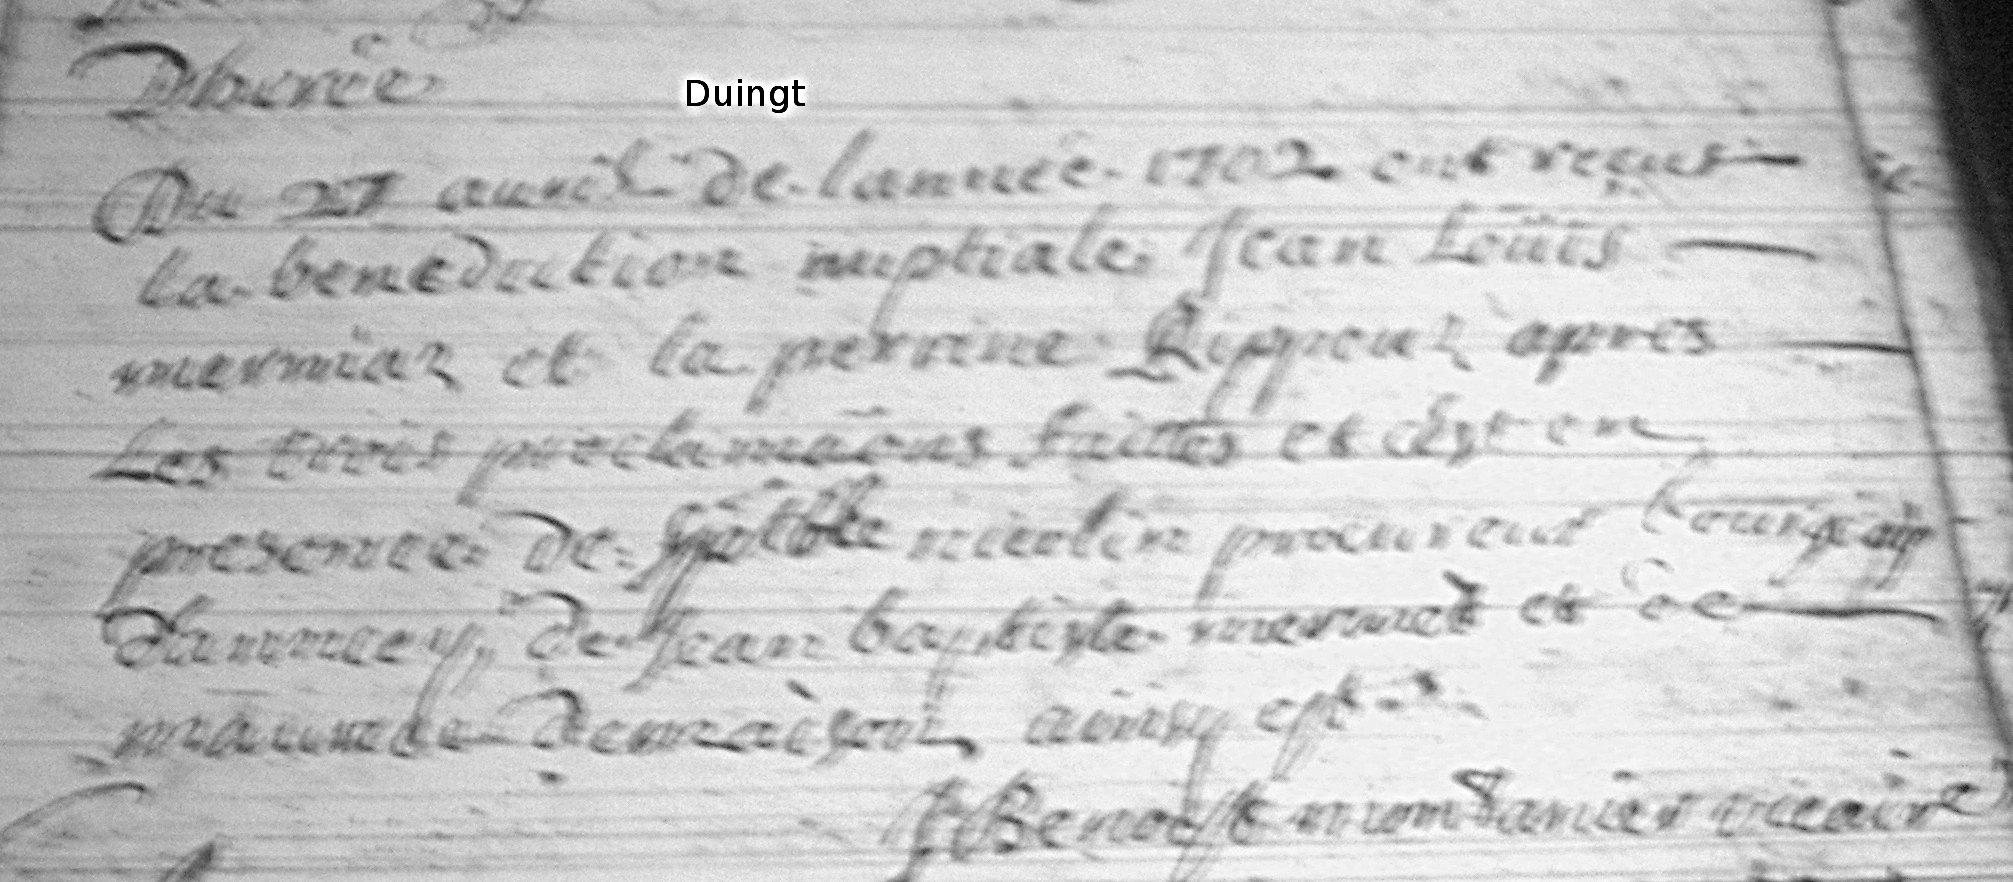 Duingt
Du 27 auril de lannee 1702 ont recus
la benediction nuptiale Jean Loüis
mermiaz et la perrine Rippeuz apres
Les trois proclamaõns faittes et c'est en
presence de nicolin procureur bourgeois
dannecy, de Jean baptiste mermet et de
maurice demaison ainsy est
Benoist montanier vicaire